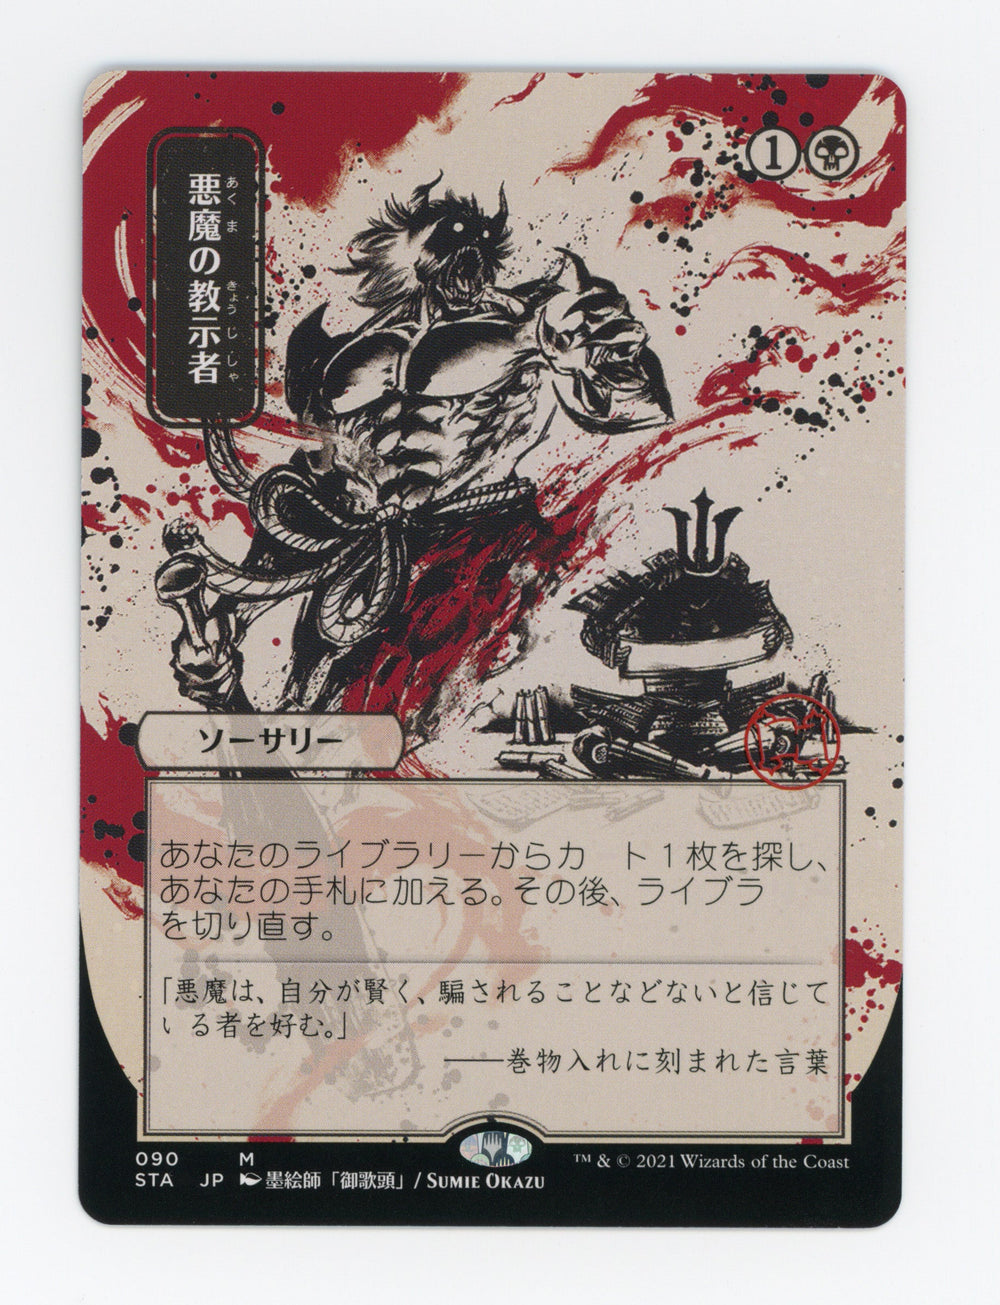 悪魔の教示者
あくま きょうじしゃ
1
ソーサリー
あなたのライブラリーからカ ト1枚を探し、
あなたの手札に加える。その後、ライブラ
を切り直す。
「悪魔は、自分が賢く、騙されることなどないと信じて
いる者を好む。」
――巻物入れに刻まれた言葉
090 M
STA JP 墨絵師「御歌頭」/ SUMIE OKAZU
™ & © 2021 Wizards of the Coast